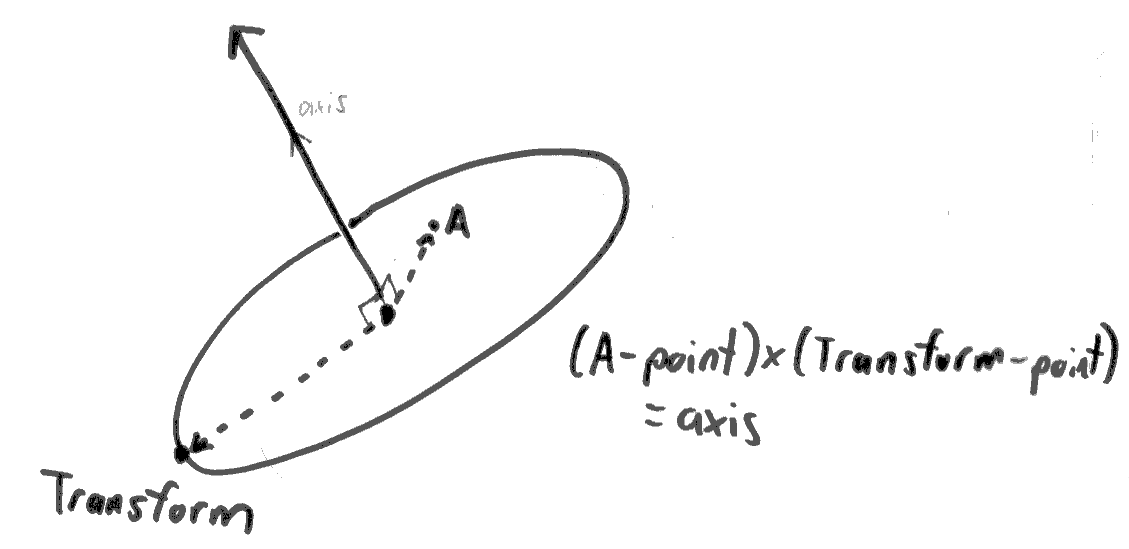 axis
A
(A-point)×(Transform-point)
= axis
Transform